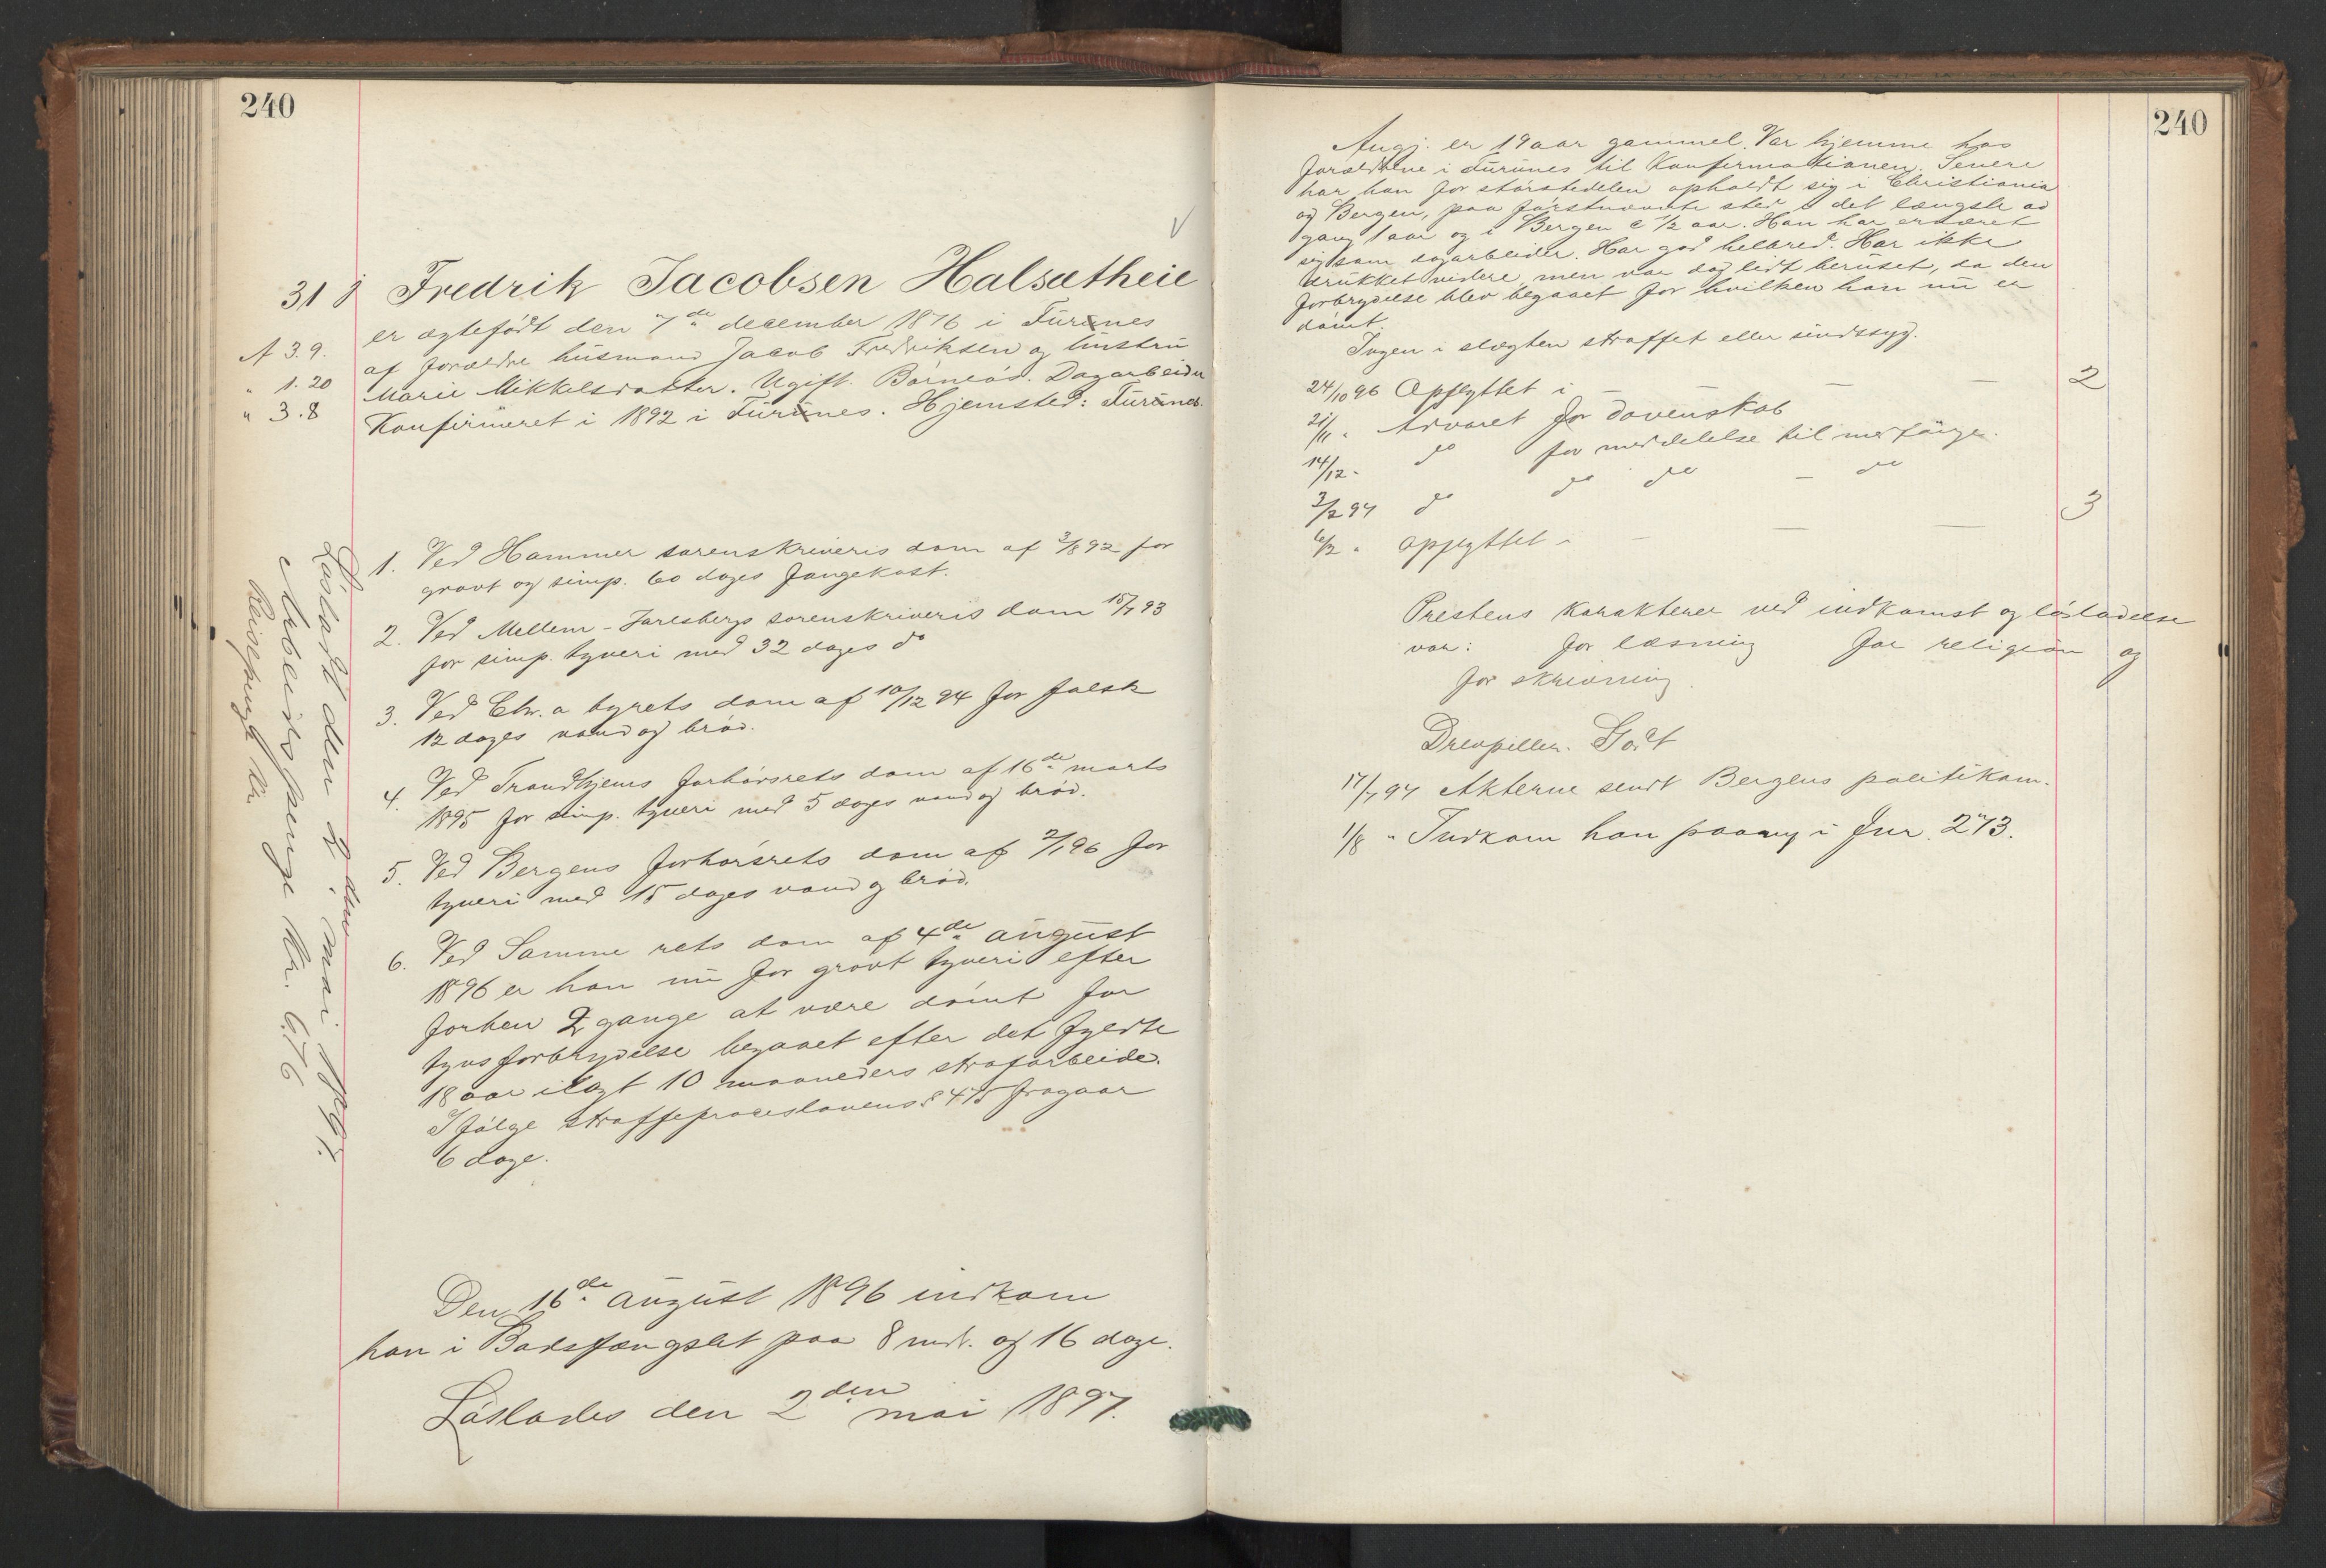 240
31 j Fredrik Jacobsen Halsætheie
er ægtefødt den 7de december 1876 i Furunes
A 3.9. af forældre husmand Jacob Fredriksen og hustru
" 1.20 Marie Mikkelsdatter. Ugift. Børneløs. Dagarbeider
" 3.8 Konfirmeret i 1892 i Furunes. Hjemsted: Furunes.
1. Ved Hammer sorenskriveris dom af 3/8 92 for
grovt og simp. 60 dages fangekost.
2. Ved Mellem-Jarlsbergs sorenskriveris dom 18/7 93
for simp. tyveri med 32 dages do
3. Ved Chr.a byrets dom af 10/12 94 for falsk
12 dages vand og brød.
4. Ved Trondhjems forhørsrets dom af 16de marts
1895 for simp. tyveri med 5 dages vand og brød.
5. Ved Bergens forhørsrets dom af 7/1 96 for
tyveri med 15 dages vand og brød.
6. Ved Samme rets dom af 4de august
1896 er han nu for grovt tyveri efter
forhen 2 gange at være dømt for
tyvsforbrydelse begaaet efter det fyldte
18 aar ilagt 10 maaneders strafarbeide.
Ifølge straffeproceslovens § 475 fragaar
6 dage.
Den 16de august 1896 indkom
han i Bodsfængslet paa 8 mdr. og 16 dage.
Løslades den 2den mai 1897.
Løsladt den 2den mai 1897.
Arbeidspenge kr. 6.76
Reisepenge kr.
240
Angj. er 19 aar gammel. Var hjemme hos
forældrene i Furunes til Konfirmationen. Senere
har han for størstedelen opholdt sig i Christiania
og Bergen, paa førstnævnte sted i det længste ad
gang 1 aar og i Bergen c 1/2 aar. Han har ernæret
sig som dagarbeider. Har god helbred. Har ikke
drukket videre, men var dog lidt beruset, da den
forbrydelse blev begaaet for hvilken han nu er
dømt.
Ingen i slægten straffet eller sindssyg.
24/10 96 Opflyttet i — — — 2
21/11 " Advaret for dovenskab
14/12 - do for meddelelse til medfange.
3/2 97 do do do — do
6/2 " Opflyttet " — — — 3
Prestens karakterer ved indkomst og løsladelse
var: for læsning for religion og
for skrivning
Drevpiller. Godt
17/7 97 Akterne sendt Bergens politikam.
1/8 " Indkom han paany i Jnr. 273.